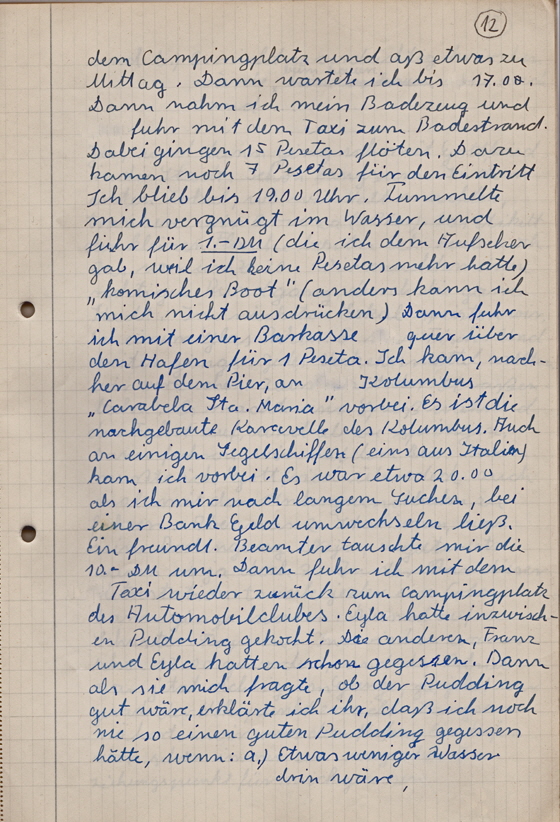 12
dem Campingplatz und aß etwas zu
Mittag. Dann wartete ich bis 17.00.
Dann nahm ich mein Badezeug und
fuhr mit dem Taxi zum Badestrand.
Dabei gingen 15 Pesetas flöten. Dazu
kamen noch 7 Pesetas für den Eintritt
Ich blieb bis 19.00 Uhr. Tummelte
mich vergnügt im Wasser, und
fuhr für 1.- DM (die ich dem Aufseher
gab, weil ich keine Pesetas mehr hatte)
„komisches Boot" (anders kann ich
mich nicht ausdrücken) Dann fuhr
ich mit einer Barkasse quer über
den Hafen für 1 Peseta. Ich kam, nach-
her auf dem Pier, an Kolumbus
„Carabela Sta. Maria" vorbei. Es ist die
nachgebaute Karavelle des Kolumbus. Auch
an einigen Segelschiffen (eins aus Italien)
kam ich vorbei. Es war etwa 20.00
als ich mir nach langem Suchen, bei
einer Bank Geld umwechseln ließ.
Ein freundl. Beamter tauschte mir die
10.- DM um. Dann fuhr ich mit dem
Taxi wieder zurück zum Campingplatz
des Automobilclubes. Eyla hatte inzwisch-
en Pudding gekocht. Die anderen, Franz
und Eyla hatten schon gegessen. Dann
als sie mich fragte, ob der Pudding
gut wäre, erklärte ich ihr, daß ich noch
nie so einen guten Pudding gegessen
hätte, wenn: a.) Etwas weniger Wasser
drin wäre,